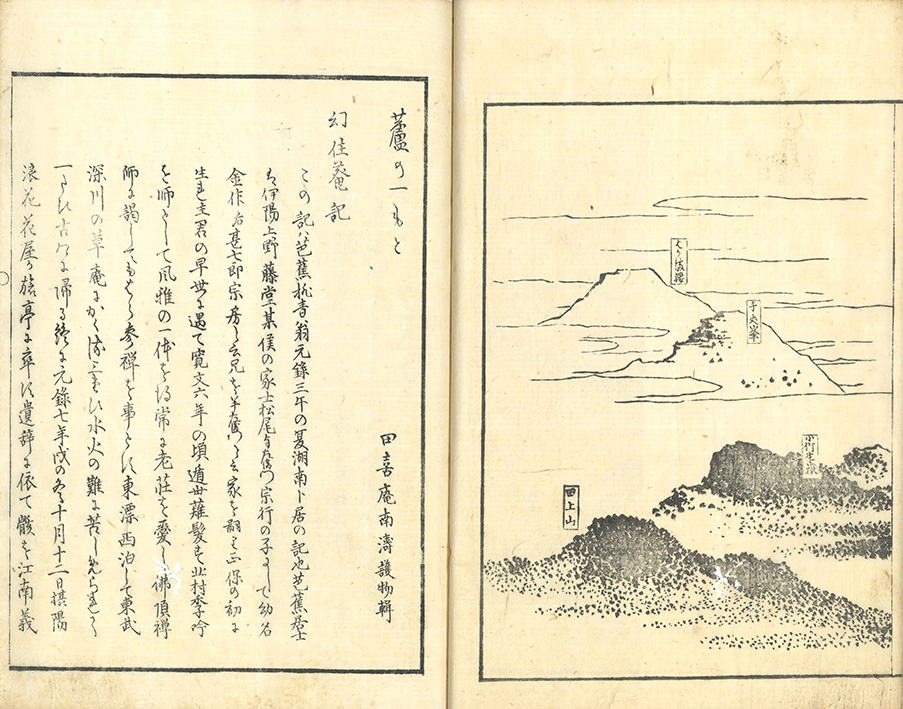 はかま腰
千丈峯
小竹生嶽
田上山
蘆の一もと
田喜庵南濤護物輯
幻住菴記
この記ハ芭蕉桃青翁元録三午の夏湖南卜居の記也芭蕉居士
は伊陽上野藤堂某侯の家士松尾与左衛門宗行の子にして幼名
金作后甚七郎宗房と云兄を半左衛門と云家を嗣く正保の初に
生れ主君の早世に遇て寛文六年の頃遁世薙髪す北村季吟
を師として風雅の一体を得常に老荘を愛し佛頂禅
師に謁してもはら参禅を事とす東漂西泊して東武
深川の草庵にかくれ 水火の難に苦しめられて
一たひ古郷に帰る終に元録七年戌の冬十月十二日摂陽
浪花花屋か旅亭に卒す遺辞に依て骸を江南義